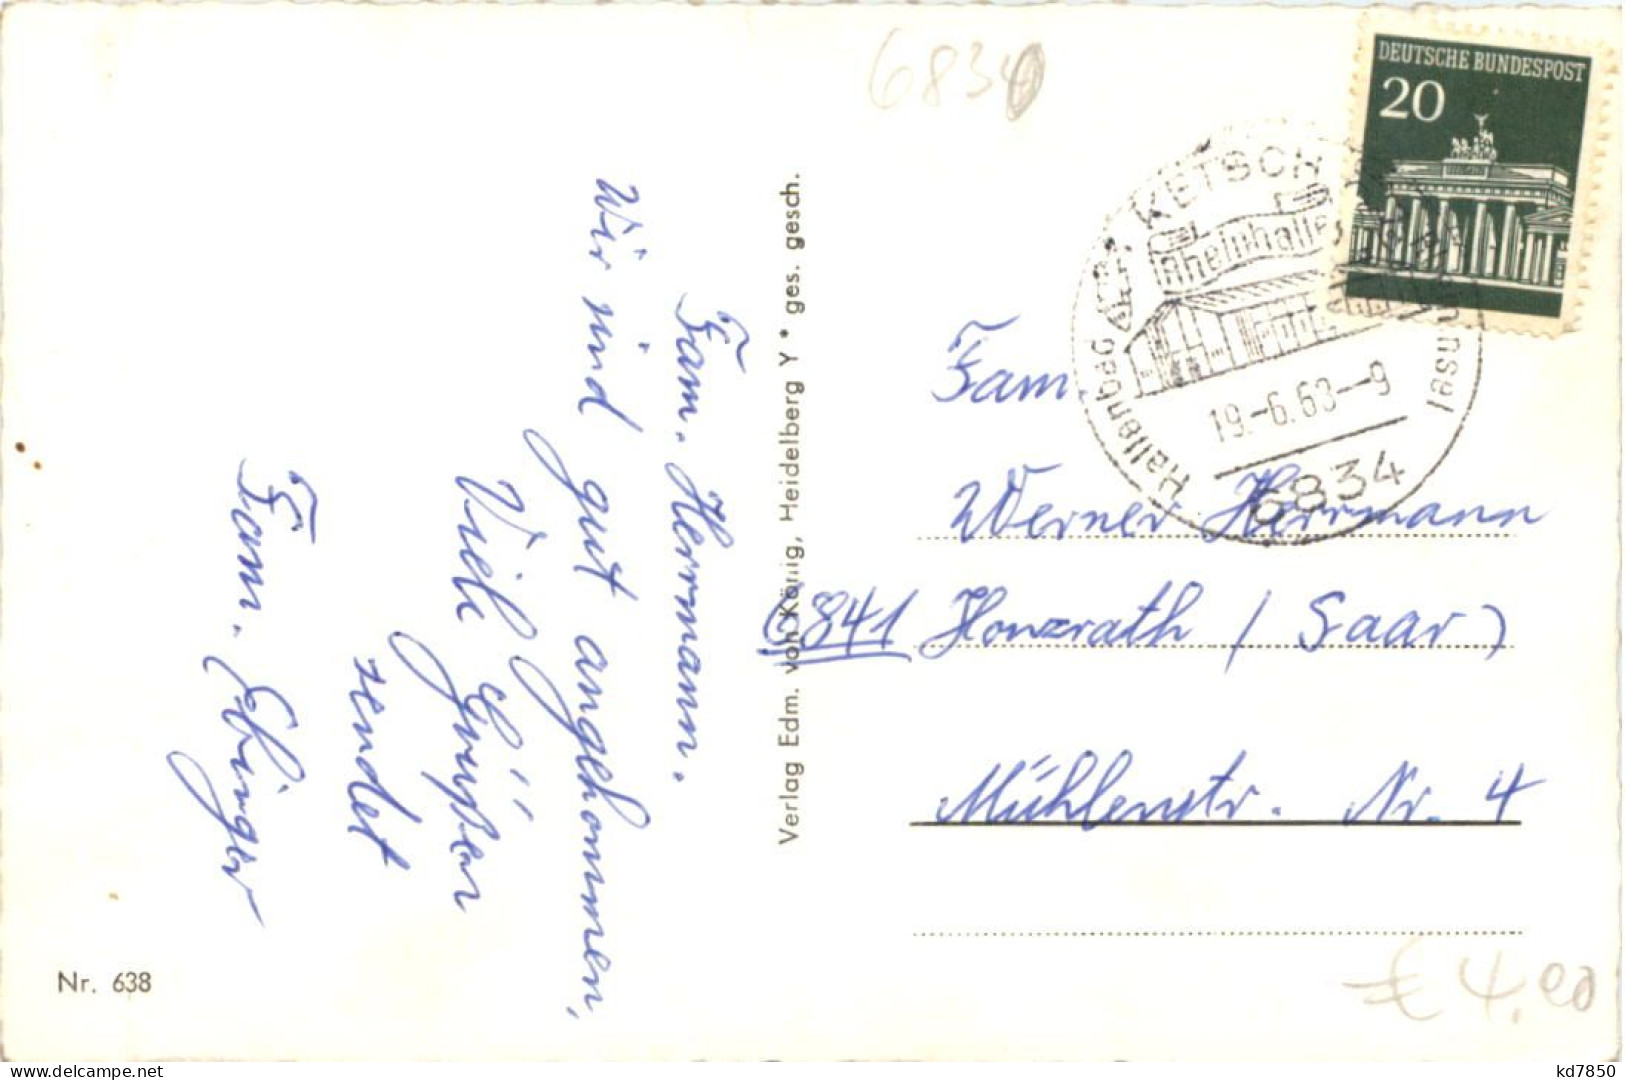 6834
DEUTSCHE BUNDESPOST
20
KETSCH
Rheinhalle
Hallenbad
insel
19.-6.68--9
6834
Fam. Herrmann.
Wir sind gut angekommen,
Viele Grüße
sendet
Fam. Ebinger
Verlag Edm. von König, Heidelberg Y * ges. gesch.
Fam.
Werner Herrmann
6841 Honzrath / Saar)
Mühlenstr. Nr. 4
Nr. 638
€ 4,00
kd7850